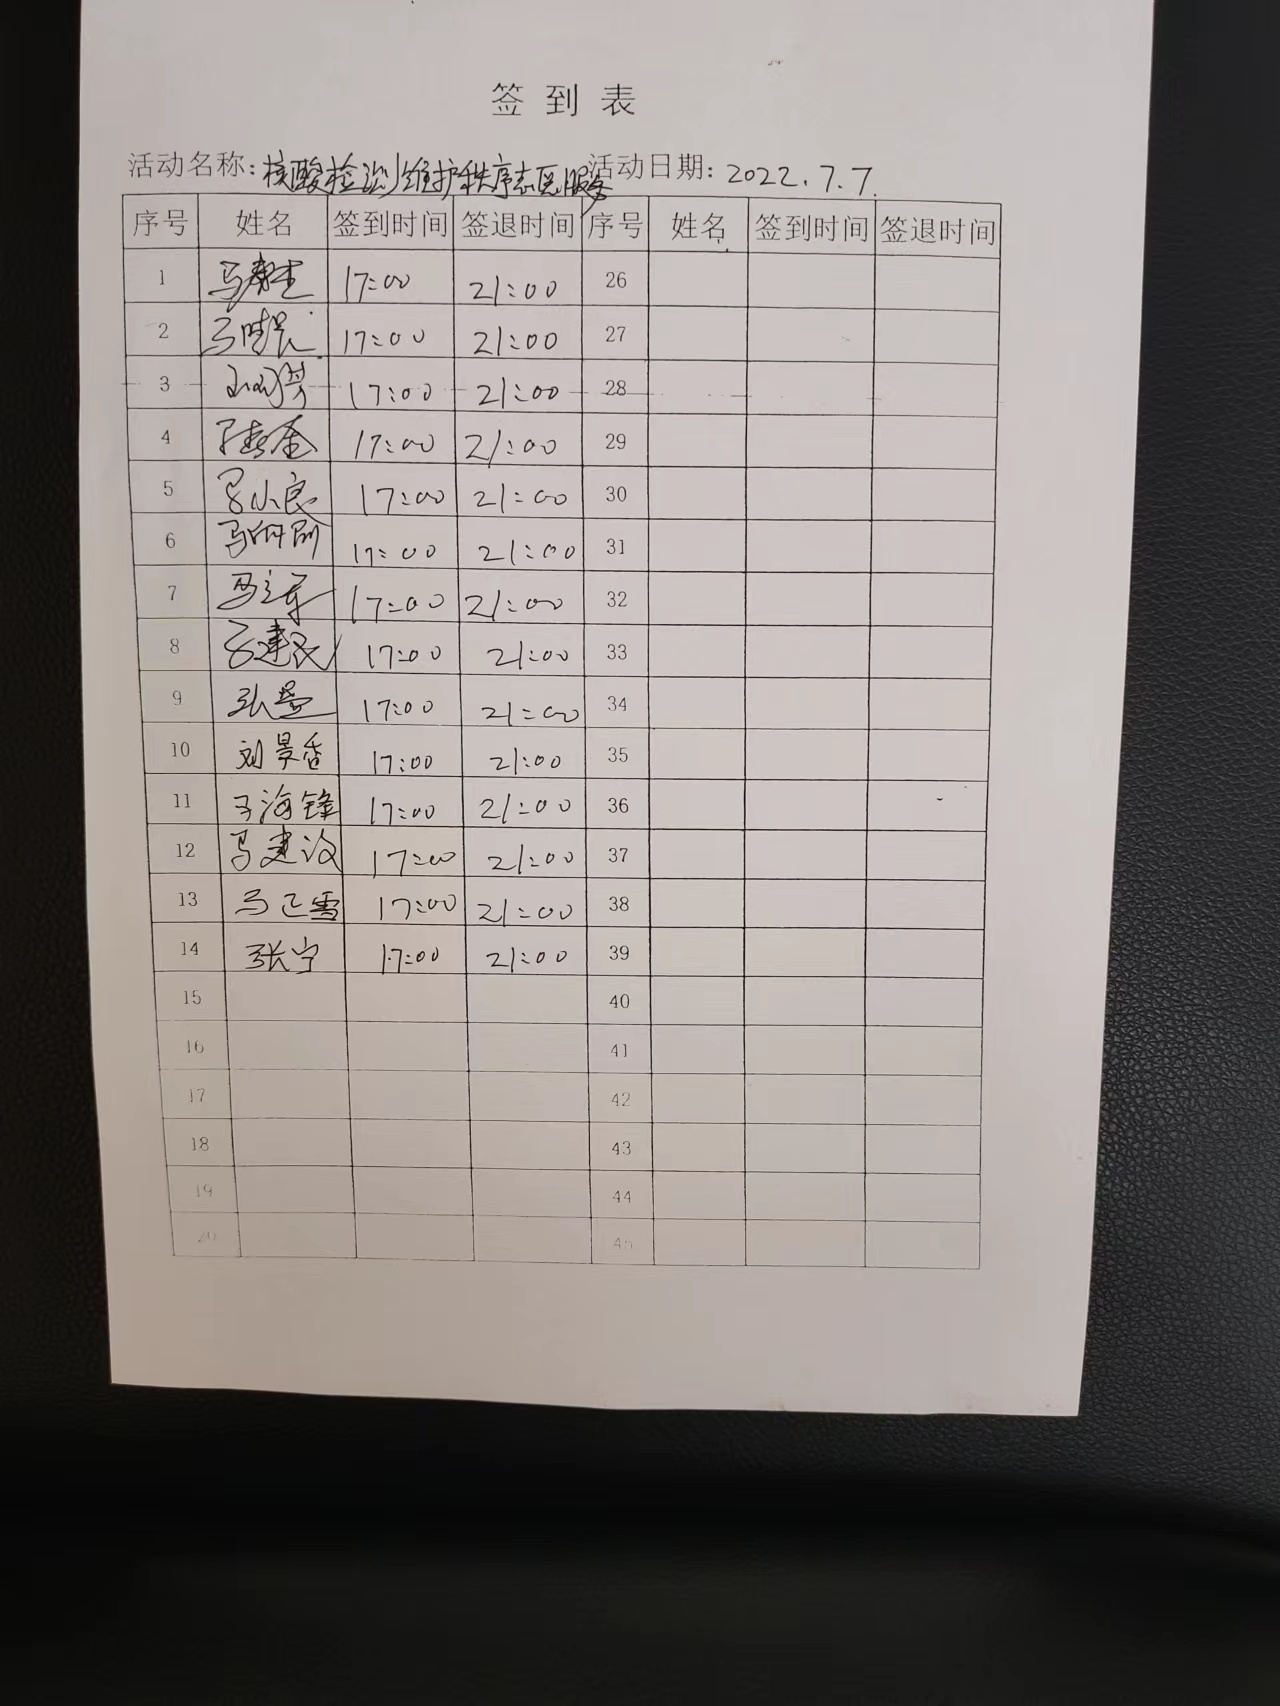 签到表
活动名称: 核酸检测维护秩序志愿服务 活动日期: 2022.7.7.
序号 姓名 签到时间 签退时间 序号 姓名 签到时间 签退时间
1 17:00 21:00 26
2 17:00 21:00 27
3 17:00 21:00 28
4 17:00 21:00 29
5 马小良 17:00 21:00 30
6 17:00 21:00 31
7 17:00 21:00 32
8 马建民 17:00 21:00 33
9 17:00 21:00 34
10 刘景香 17:00 21:00 35
11 马海锋 17:00 21:00 36
12 马建设 17:00 21:00 37
13 马正雪 17:00 21:00 38
14 张宁 17:00 21:00 39
15 40
16 41
17 42
18 43
19 44
20 45